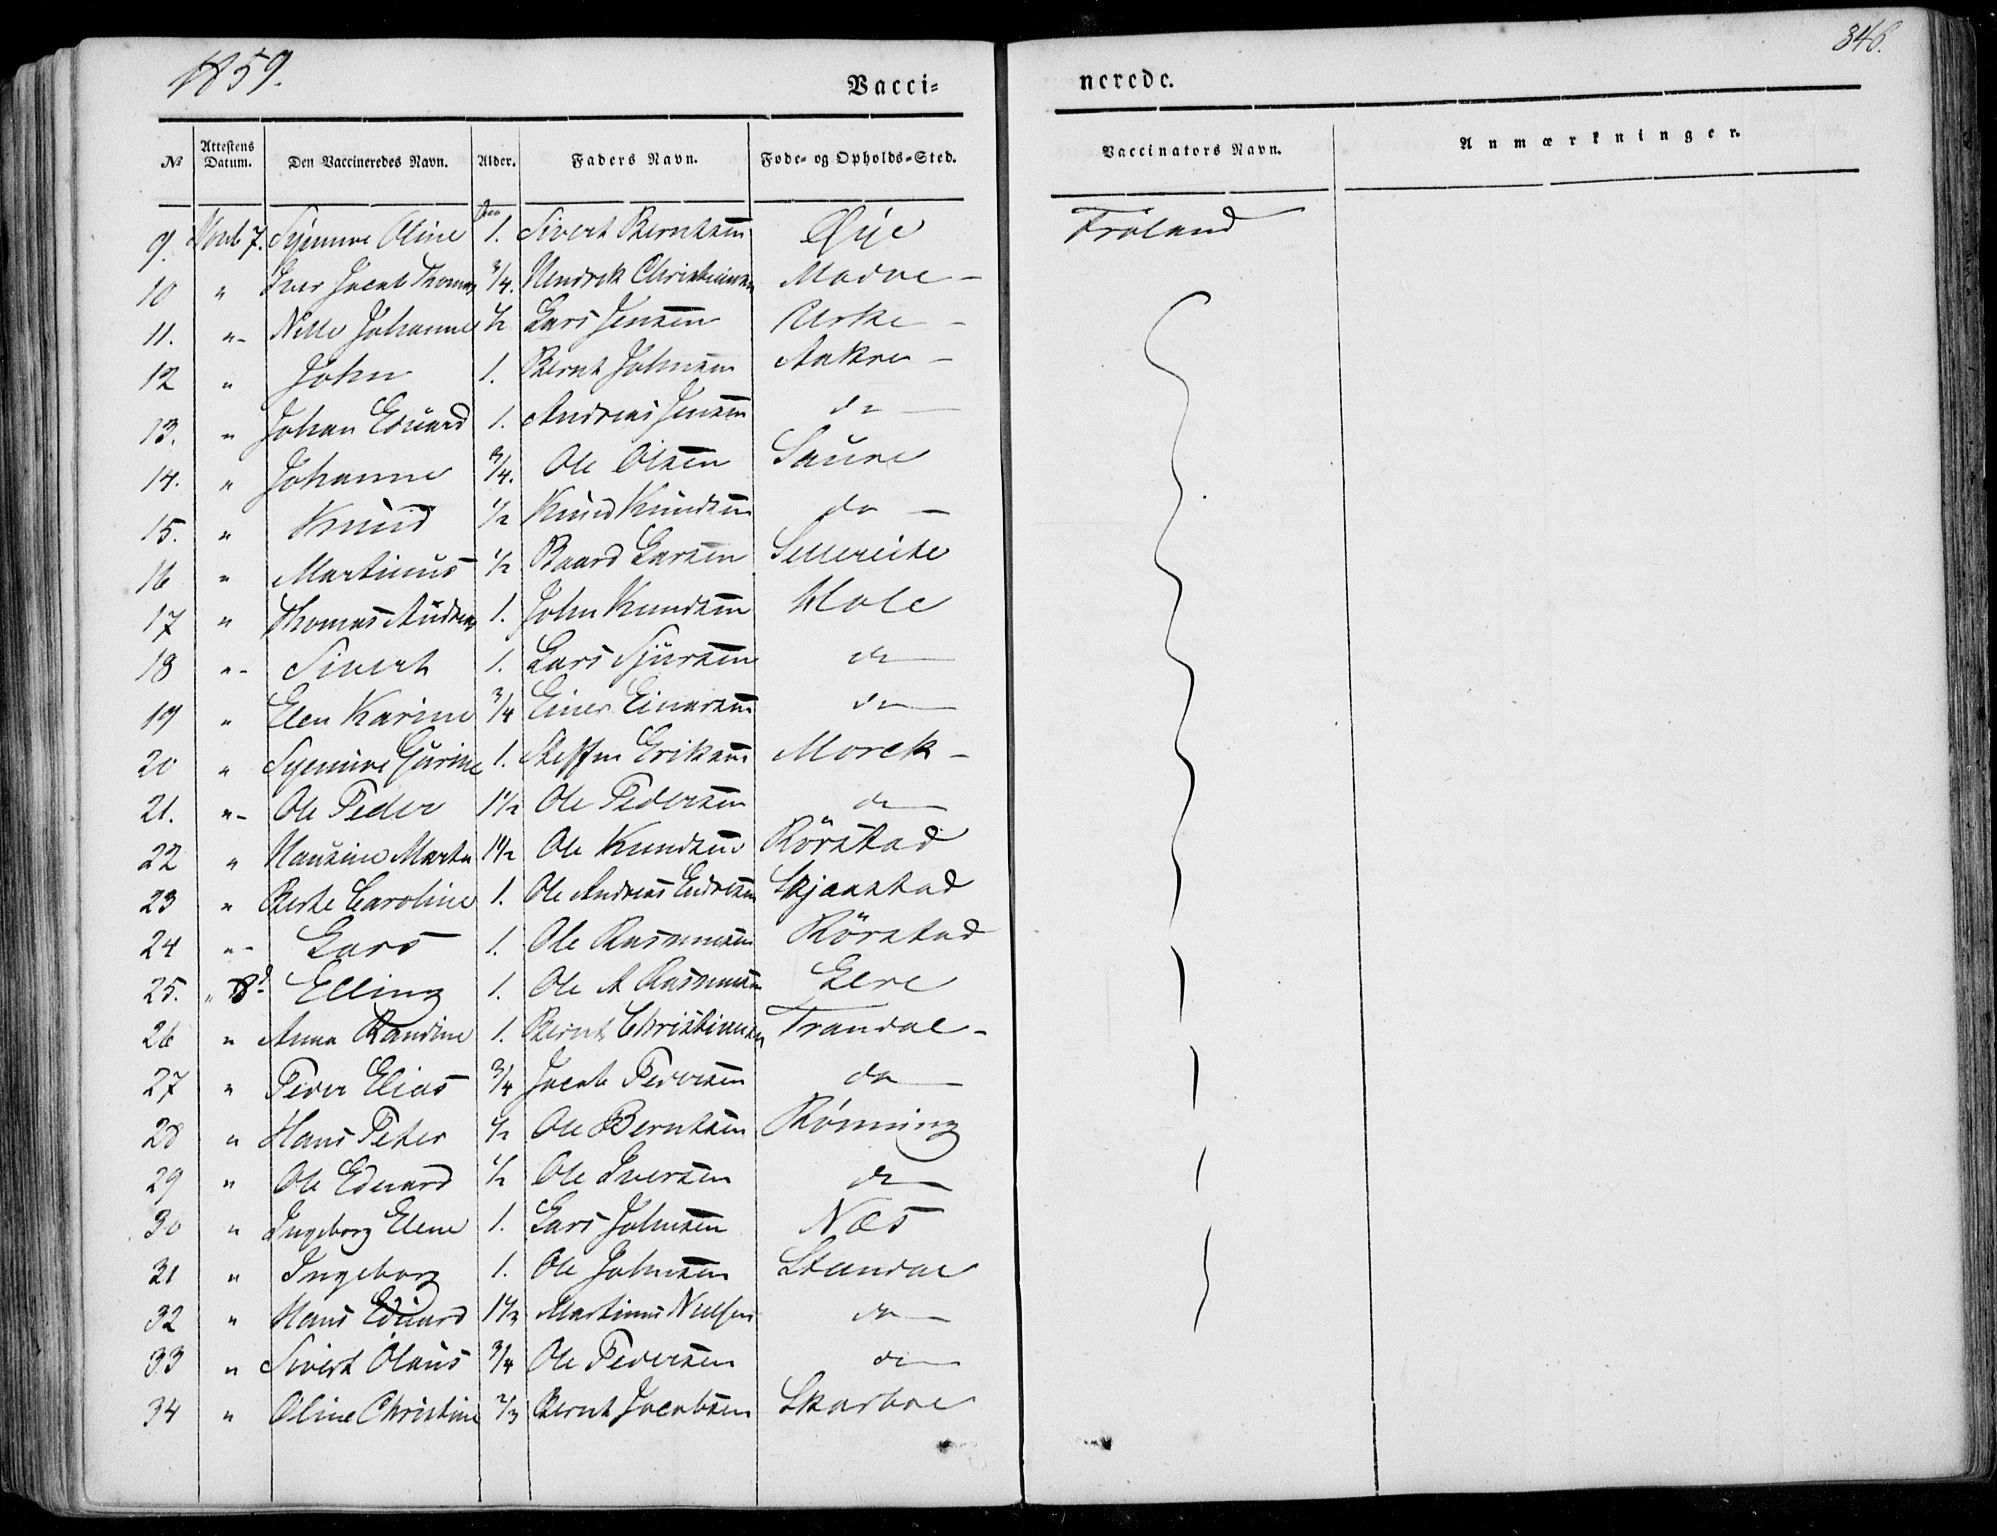 1859.
346.
Vacci-
nerede.
№ Attestens Datum. Den Vaccineredes Navn. Alder. Faders Navn. Føde- og Opholds-Sted. Vaccinators Navn. Anmærkninger.
9. 7. Synnive Oline 1. Sivert Berntsen Øye Fröland
10 " Iver Jacob Thomas 3/4. Hendrik Christiansen Modve -
11. "- Nille Johanne 1/2 Lars Jensen Urke -
12 " John 1. Bernt Johnsen Aakre -
13. " Johan Eduard 1. Andreas Jensen do -
14. " Johanne 3/4. Ole Olsen Saure
15. " Knud 1/2 Knud Knudsen do -
16 " Martinus 1/2 Baard Larsen Sellereite
17 " Thomas Andreas 1. John Knudsen Hole
18 "- Sivert 1. Lars Sjursen do -
19 " Elen Karine 3/4 Einer Einersen do -
20 " Synnive Gurine 1. Steffen Eriksen Morck -
21. "- Ole Peder 1 1/2 Ole Pedersen do -
22 " Hansine Marta 1 1/2 Ole Knudsen Rörstad
23 " Berte Caroline 1. Ole Andreas Endresen Skjaastad
24 "- Lars 1. Ole Rasmussen Rörstad
25. " 8d. Elling 1. Ole A Rasmussen Lere
26 " Anna Randine 1. Bernt Christiansen Trandal -
27 " Peder Elias 3/4 Jacob Pedersen do -
28 " Hans Peter 1/2 Ole Berntsen Rønning
29 " Ole Eduard 1/2 Ole Iversen do -
30 " Ingeborg Elene 1. Lars Johnsen Næs
31 " Ingeborg 1. Ole Johnsen Standal
32 " Hans Eduard 1 1/3 Martinus Nielsen do -
33 " Sivert Olaus 3/4 Ole Pedersen do -
34 " Oline Christine 2/3 Bernt Jacobsen Skarboe